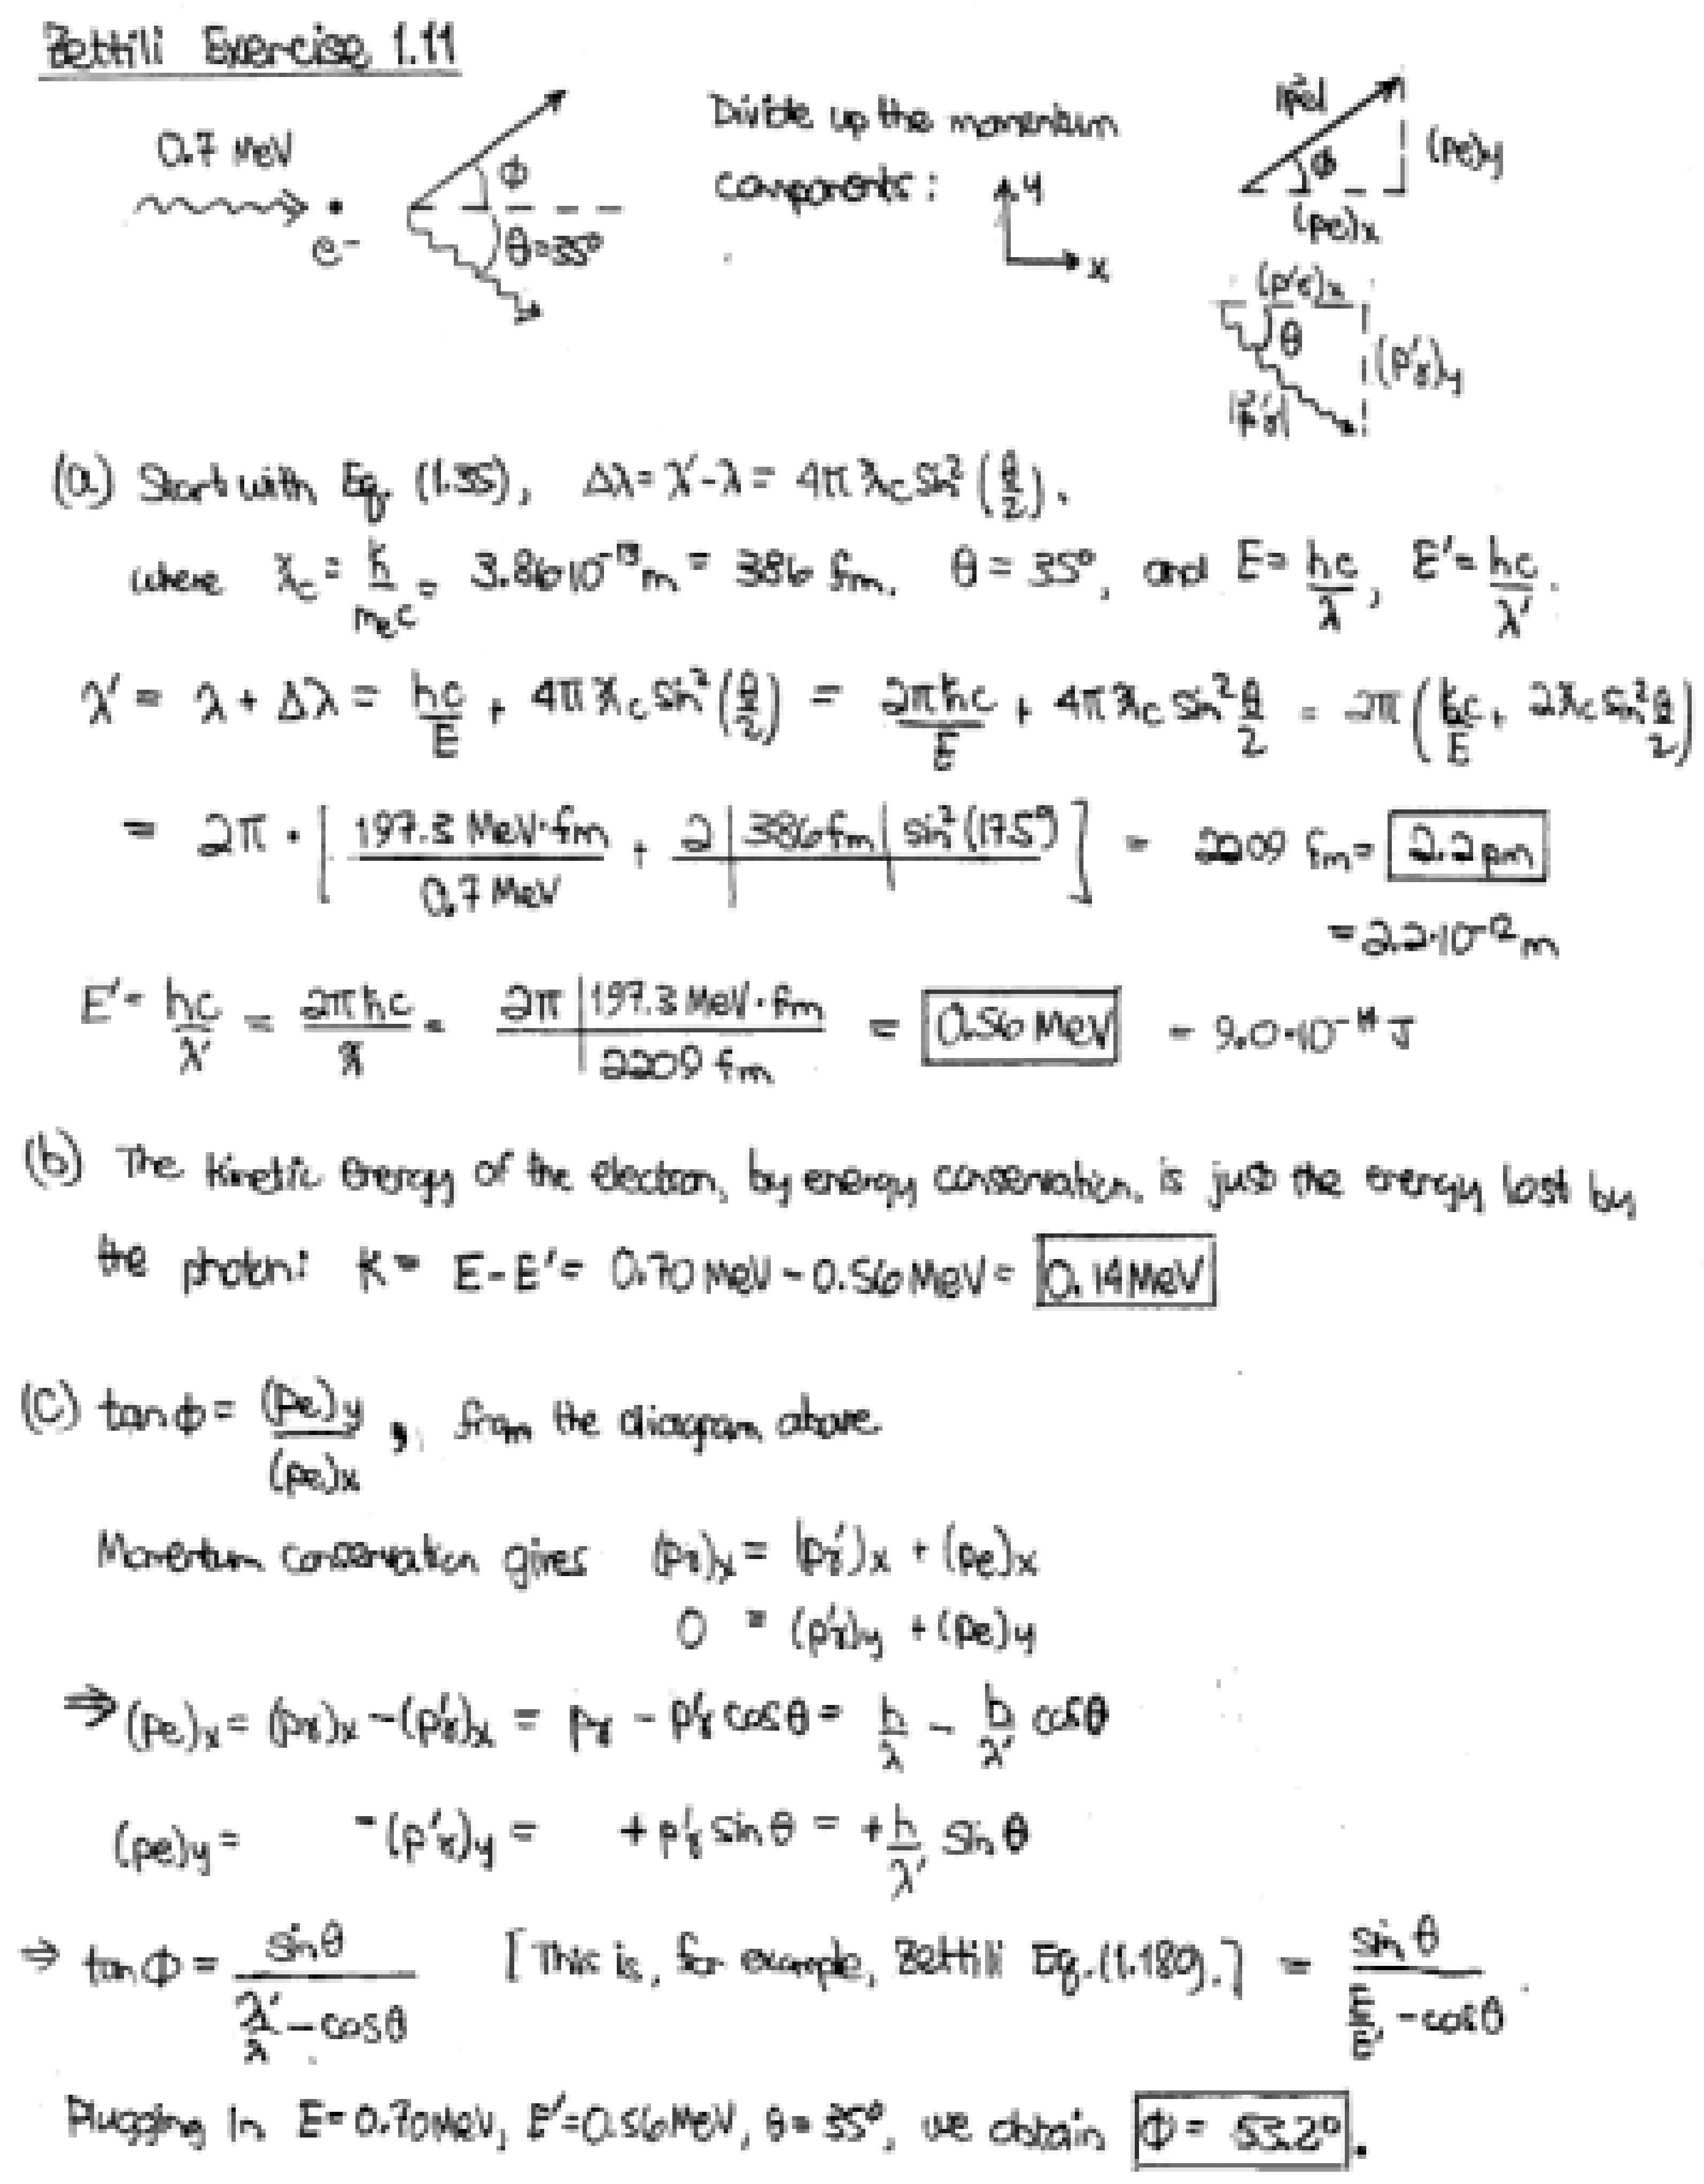 Zettili Exercise 1.11
0.7 MeV
e-
ϕ
θ=35°
Divide up the momentum
components:
y
x
|p⃗e|
ϕ
(pe)y
(pe)x
(p'γ)x
θ
(p'γ)y
|p⃗'γ|
(a) Start with Eq. (1.35), Δλ = λ'-λ = 4π ƛc sin²(θ/2).
where ƛc = ħ/mec = 3.86·10⁻¹³ m = 386 fm. θ = 35°, and E = hc/λ, E' = hc/λ'.
λ' = λ + Δλ = hc/E + 4π ƛc sin²(θ/2) = 2πħc/E + 4π ƛc sin² θ/2 = 2π(ħc/E + 2ƛc sin² θ/2)
= 2π · [197.3 MeV·fm / 0.7 MeV + 2 | 386 fm | sin²(17.5°)] = 2209 fm = 2.2 pm
= 2.2·10⁻¹² m
E' = hc/λ' = 2πħc/λ' = 2π | 197.3 MeV·fm / 2209 fm = 0.56 MeV = 9.0·10⁻¹⁴ J
(b) The kinetic energy of the electron, by energy conservation, is just the energy lost by
the photon: K = E-E' = 0.70 MeV - 0.56 MeV = 0.14 MeV
(c) tan ϕ = (pe)y/(pe)x, from the diagram above
Momentum conservation gives (pγ)x = (p'γ)x + (pe)x
0 = (p'γ)y + (pe)y
⇒ (pe)x = (pγ)x - (p'γ)x = pγ - p'γ cosθ = h/λ - h/λ' cosθ
(pe)y = -(p'γ)y = + p'γ sinθ = + h/λ' sin θ
⇒ tan ϕ = sinθ / (λ'/λ - cosθ) [This is, for example, Zettili Eq. (1.189).] = sin θ / (E/E' - cosθ).
Plugging in E=0.70 MeV, E'=0.56 MeV, θ = 35°, we obtain ϕ = 53.2°.